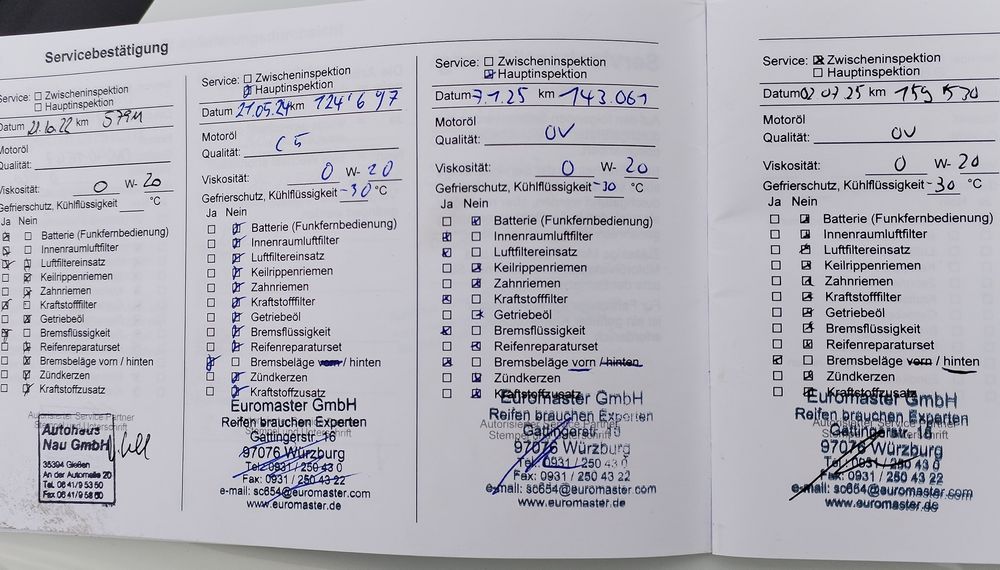 Servicebestätigung
Service: Zwischeninspektion
Hauptinspektion
Datum 21.10.22 km
Motoröl
Qualität:
Viskosität: 0 W- 20
Gefrierschutz, Kühlflüssigkeit °C
Ja Nein
Batterie (Funkfernbedienung)
Innenraumluftfilter
Luftfiltereinsatz
Keilrippenriemen
Zahnriemen
Kraftstofffilter
Getriebeöl
Bremsflüssigkeit
Reifenreparaturset
Bremsbeläge vorn / hinten
Zündkerzen
Kraftstoffzusatz
Autorisierter Service Partner
Stempel und Unterschrift
Autohaus
Nau GmbH
35394 Gießen
An der Automeile 20
Tel. 06 41/9 53 50
Fax 06 41/9 58 60
Service: Zwischeninspektion
Hauptinspektion
Datum 21.05.24 km 124'697
Motoröl
Qualität: C5
Viskosität: 0 W- 20
Gefrierschutz, Kühlflüssigkeit -30 °C
Ja Nein
Batterie (Funkfernbedienung)
Innenraumluftfilter
Luftfiltereinsatz
Keilrippenriemen
Zahnriemen
Kraftstofffilter
Getriebeöl
Bremsflüssigkeit
Reifenreparaturset
Bremsbeläge vorn / hinten
Zündkerzen
Kraftstoffzusatz
Euromaster GmbH
Reifen brauchen Experten
Gattingerstr. 16
Stempel und Unterschrift
97076 Würzburg
Tel.: 0931 / 250 43 0
Fax: 0931 / 250 43 22
e-mail: sc654@euromaster.com
www.euromaster.de
Service: Zwischeninspektion
Hauptinspektion
Datum 7.1.25 km 143.061
Motoröl
Qualität: OV
Viskosität: 0 W- 20
Gefrierschutz, Kühlflüssigkeit -30 °C
Ja Nein
Batterie (Funkfernbedienung)
Innenraumluftfilter
Luftfiltereinsatz
Keilrippenriemen
Zahnriemen
Kraftstofffilter
Getriebeöl
Bremsflüssigkeit
Reifenreparaturset
Bremsbeläge vorn / hinten
Zündkerzen
Kraftstoffzusatz
Euromaster GmbH
Reifen brauchen Experten
Autorisierter Service Partner
Gattingerstr. 16
Stempel und Unterschrift
97076 Würzburg
Tel.: 0931 / 250 43 0
Fax: 0931 / 250 43 22
e-mail: sc654@euromaster.com
www.euromaster.de
Service: Zwischeninspektion
Hauptinspektion
Datum 02 07 25 km 159 530
Motoröl
Qualität: OV
Viskosität: 0 W- 20
Gefrierschutz, Kühlflüssigkeit -30 °C
Ja Nein
Batterie (Funkfernbedienung)
Innenraumluftfilter
Luftfiltereinsatz
Keilrippenriemen
Zahnriemen
Kraftstofffilter
Getriebeöl
Bremsflüssigkeit
Reifenreparaturset
Bremsbeläge vorn / hinten
Zündkerzen
Kraftstoffzusatz
Euromaster GmbH
Reifen brauchen Experten
Autorisierter Service Partner
Gattingerstr. 16
Stempel und Unterschrift
97076 Würzburg
Tel.: 0931 / 250 43 0
Fax: 0931 / 250 43 22
e-mail: sc654@euromaster.com
www.euromaster.de